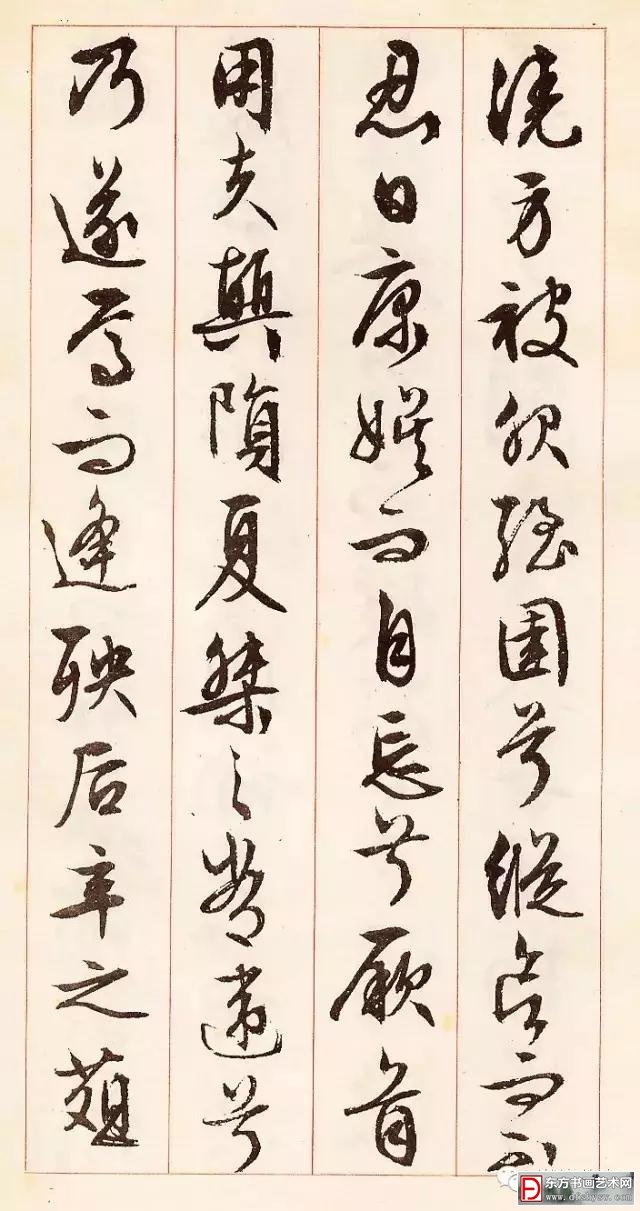 澆身被服強圉兮縱欲而不
忍日康娛而自忘兮厥首
用夫顛隕夏桀之常違兮
乃遂焉而逢殃后辛之葅
东方书画艺术网